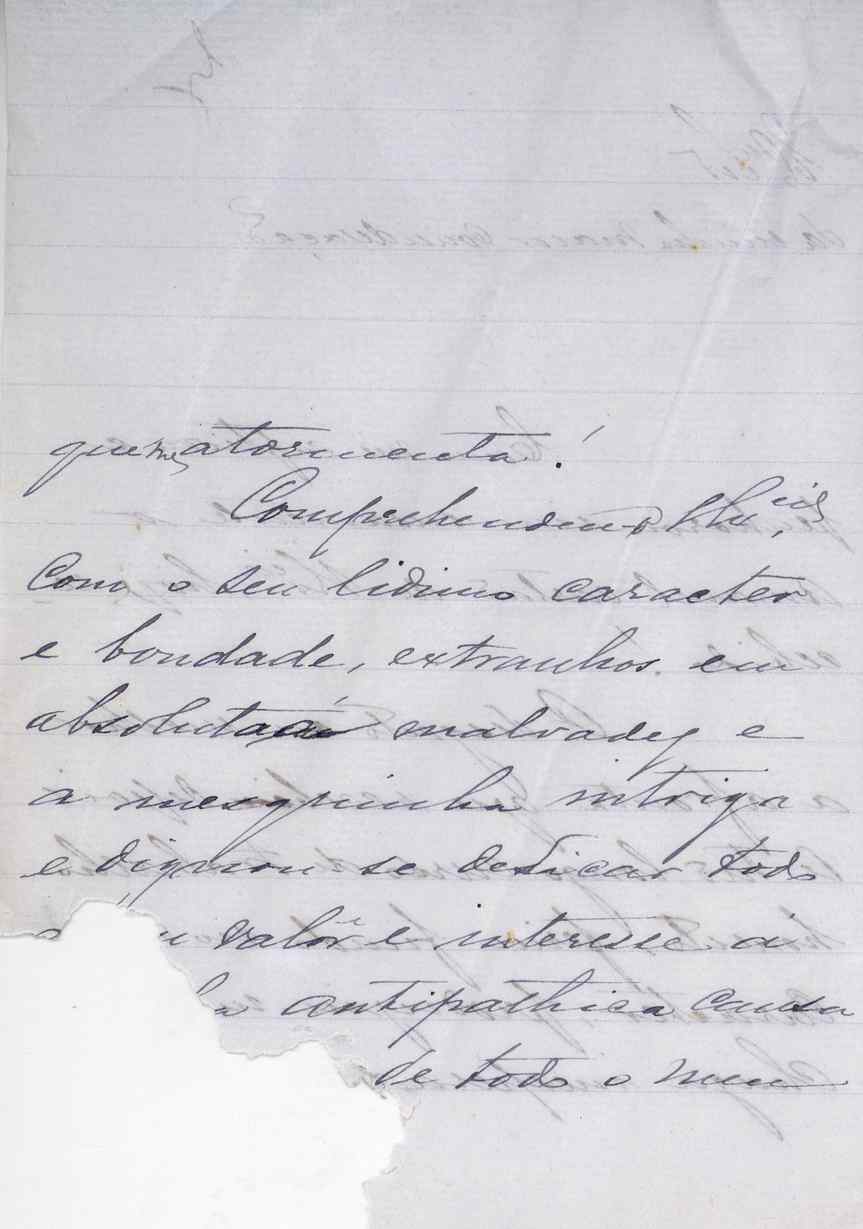 que me atormenta!
Comprehendeu-o Illu.
com o seu lidimo caracter
e bondade, extranhos em
absoluto á malvadez e
a mesquinha intriga
e dignou se dedicar todo
valor e interesse á
antipathica causa
de todo o meu